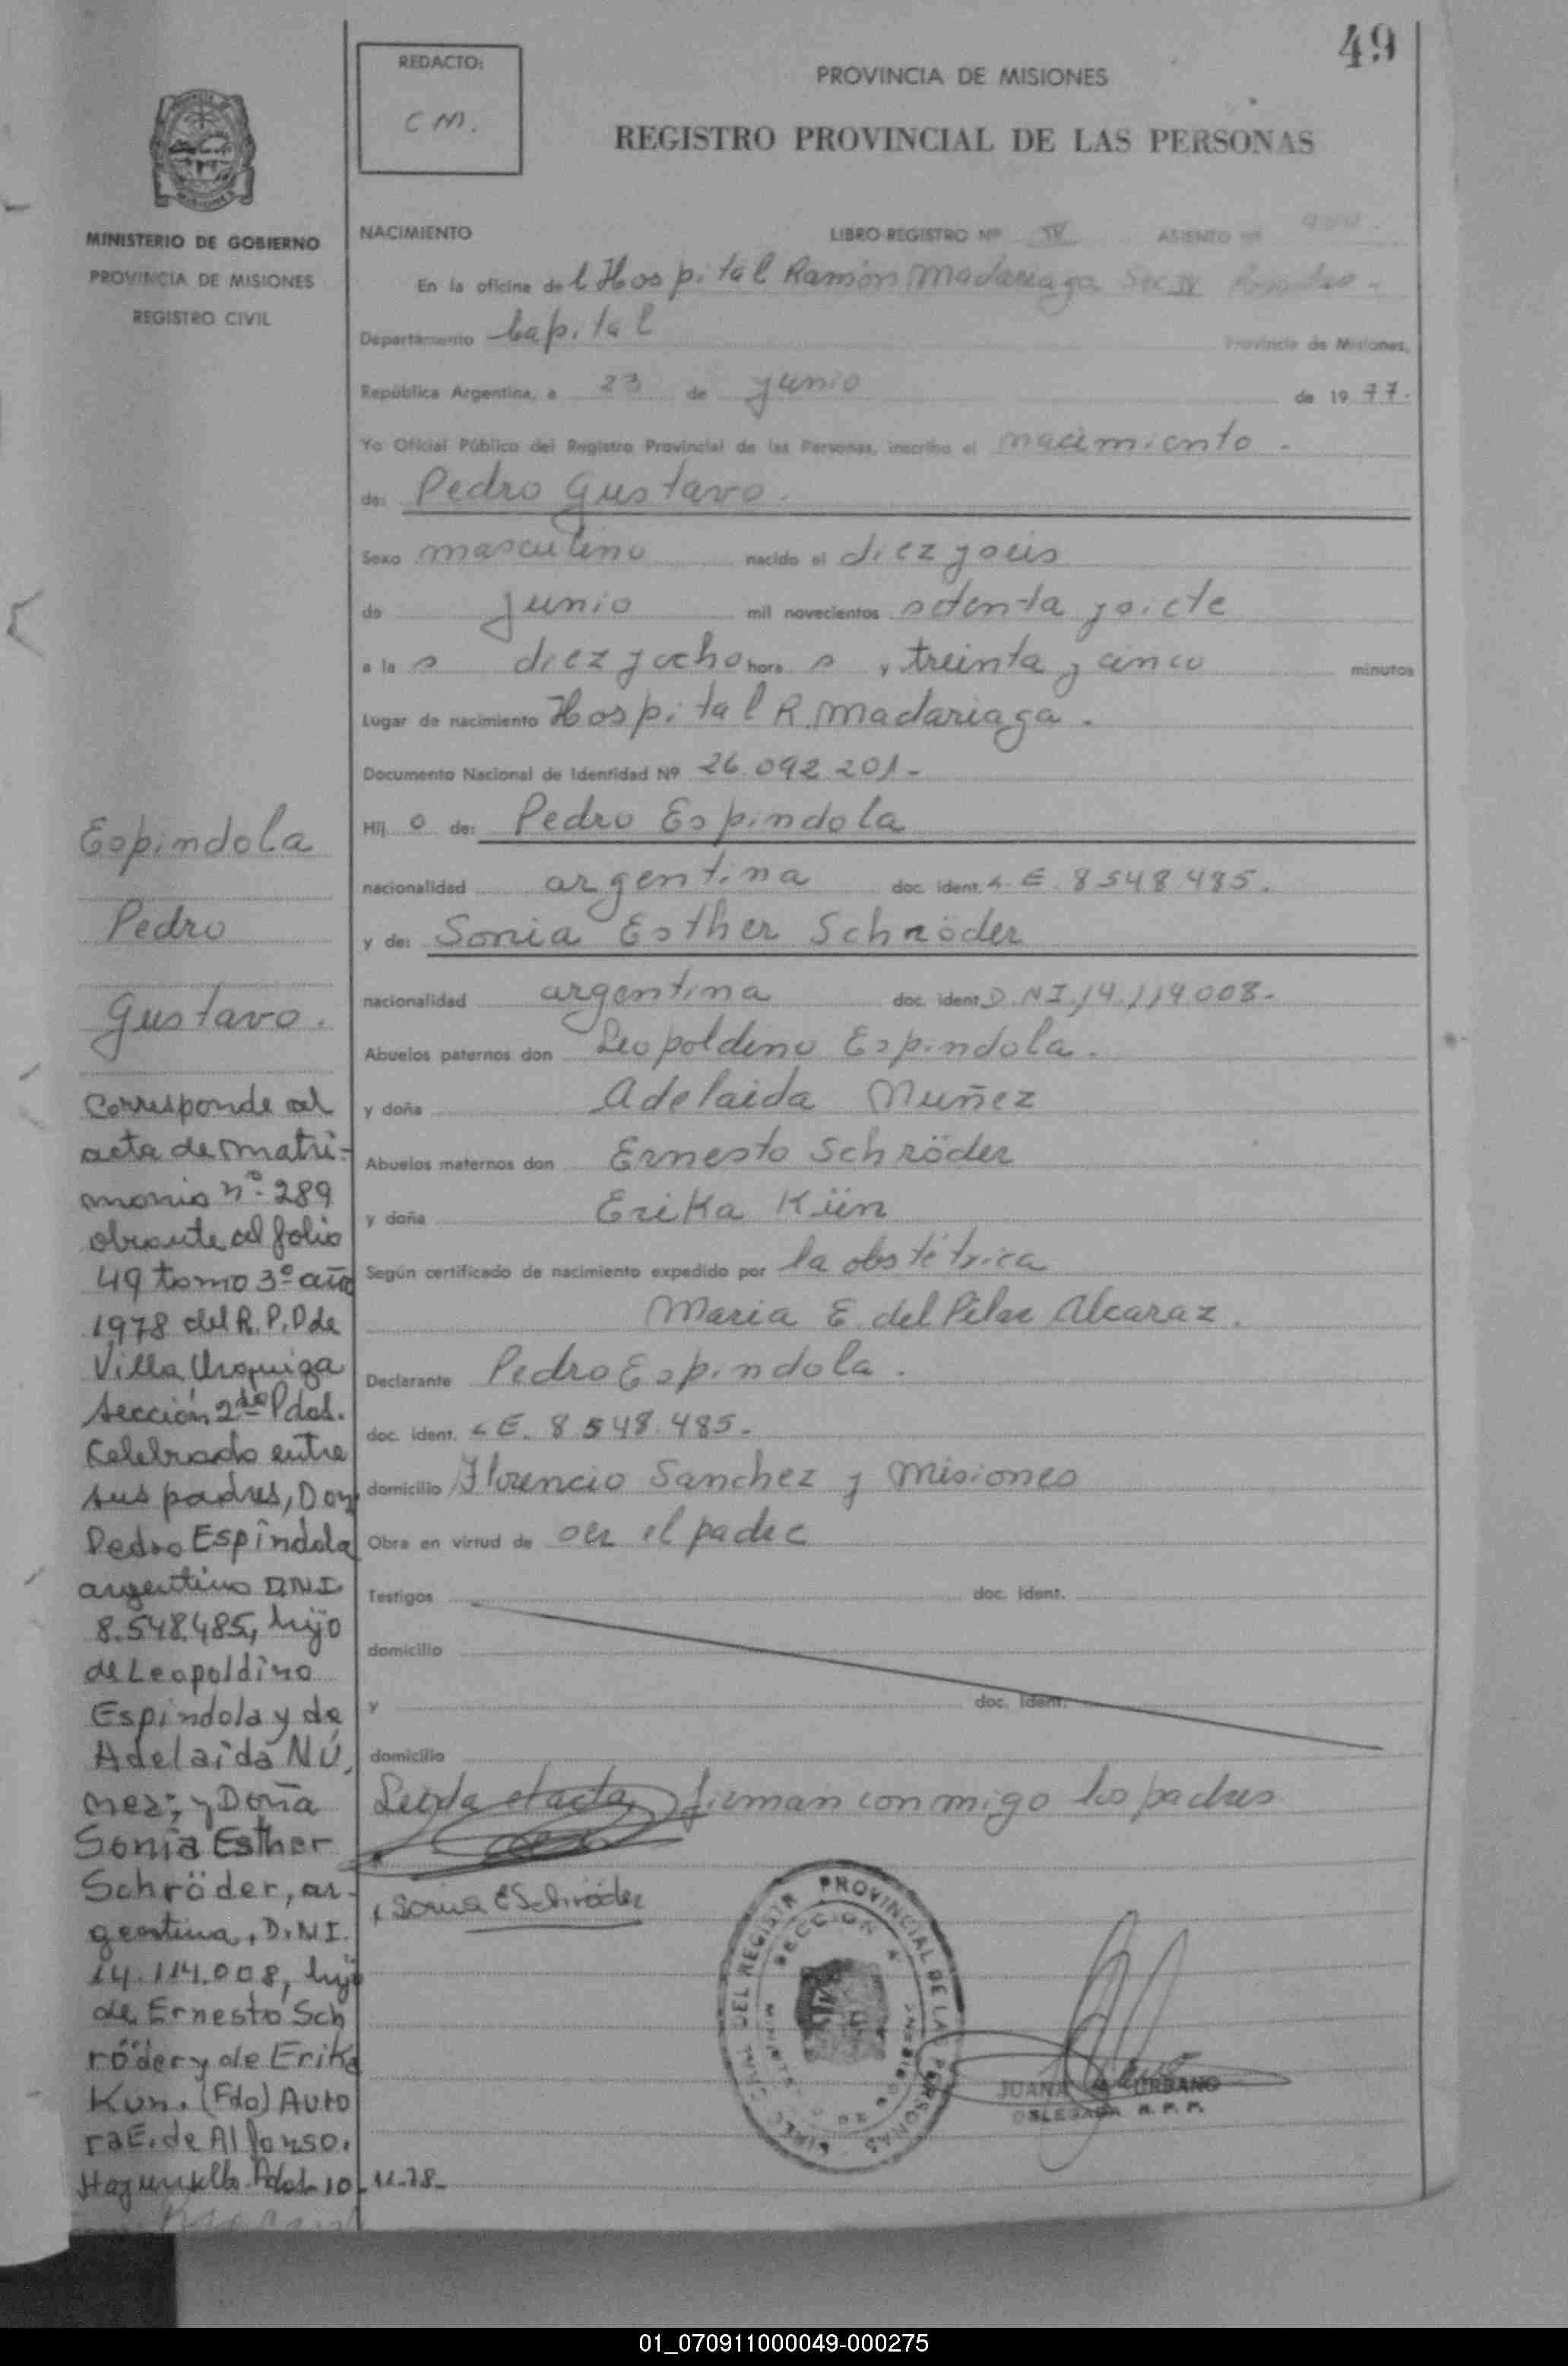 49
REDACTO:
C M.
PROVINCIA DE MISIONES
REGISTRO PROVINCIAL DE LAS PERSONAS
MINISTERIO DE GOBIERNO
PROVINCIA DE MISIONES
REGISTRO CIVIL
NACIMIENTO LIBRO REGISTRO Nº IV ASIENTO Nº
En la oficina del Hospital Ramón Madariaga Sec IV
Departamento Capital Provincia de Misiones,
República Argentina, a 23 de junio de 1977.
Yo Oficial Público del Registro Provincial de las Personas, inscribo el nacimiento.
de: Pedro Gustavo.
Sexo masculino nacido el diez y seis
de junio mil novecientos setenta y siete
a las diez y ocho horas y treinta y cinco minutos
Lugar de nacimiento Hospital R. Madariaga.
Documento Nacional de Identidad Nº 26.092.201-
Hijo de: Pedro Espindola
nacionalidad argentina doc. ident. L.E. 8548485.
y de: Sonia Esther Schröder
nacionalidad argentina doc. ident. D.N.I. 14.119.008-
Abuelos paternos don Leopoldino Espindola.
y doña Adelaida Muñez
Abuelos maternos don Ernesto Schröder
y doña Erika Kün
Según certificado de nacimiento expedido por la obstétrica
Maria E. del Pilar Alcaraz.
Declarante Pedro Espindola.
doc. ident. L.E. 8.548.485-
domicilio Florencio Sanchez y Misiones
Obra en virtud de ser el padre
Testigos doc. ident.
domicilio
y doc. ident.
domicilio
Leida el acta, firman conmigo los padres
Sonia E Schröder
PROVINCIAL DE LAS PERSONAS
DEL REGISTRO
SECCION
JUANA URBANO
DELEGADA R. P. P.
Espindola
Pedro
Gustavo.
Corresponde al
acta de matri-
monio nº 289
obrante al folio
49 tomo 3º año
1978 del R.P.P de
Villa Urquiza
Sección 2da Pdas.
Celebrado entre
sus padres, Don
Pedro Espíndola
argentino D.N.I.
8.548.485, hijo
de Leopoldino
Espíndola y de
Adelaida Nú,
nez; y Doña
Sonia Esther
Schröder, ar-
gentina, D.N.I.
14.114.008, hija
de Ernesto Sch
röder y de Erika
Kun. (Fdo) Auro
ra E. de Alfonso.
Pdas 10-11-78-
01_070911000049-000275